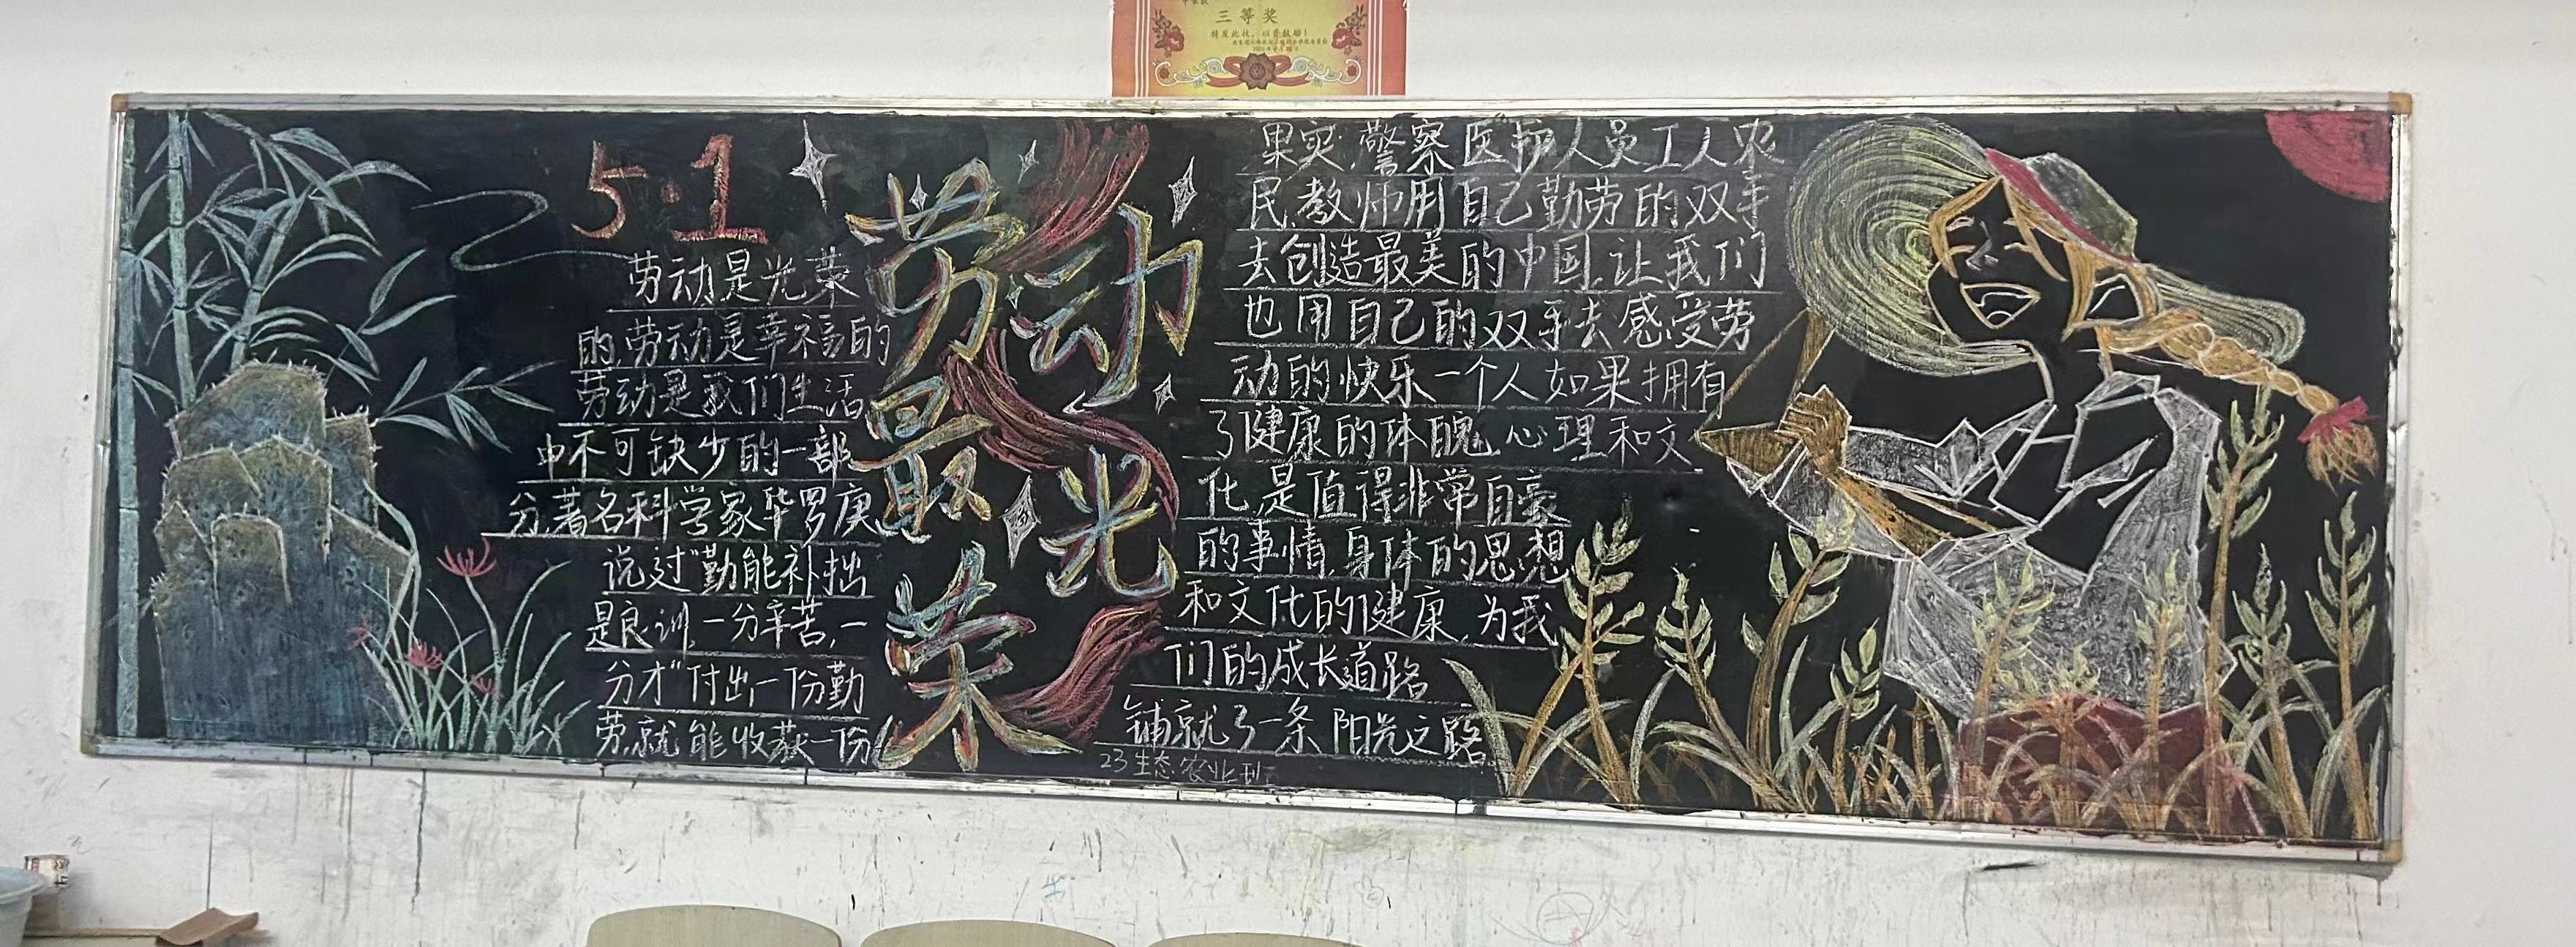 三等奖
特发此状，以资鼓励！
5·1
劳动是光荣
的,劳动是幸福的
劳动是我们生活
中不可缺少的一部
分,著名科学家华罗庚
说过"勤能补拙
是良训,一分辛苦,一
分才"付出一份勤
劳,就能收获一份
劳动
最光
荣
果实,警察医护人员工人农
民,教师用自己勤劳的双手
去创造最美的中国,让我们
也用自己的双手去感受劳
动的快乐一个人如果拥有
了健康的体魄,心理和文
化,是值得非常自豪
的事情,身体的思想
和文化的健康,为我
们的成长道路
铺就了一条阳光之路
23生态农业班